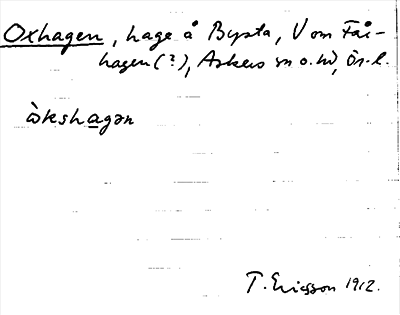 Oxhagen, hage å Bysta, V om Får-
hagen (?), Askers sn o. hd, Ör. l.
òkshagən
T. Ericsson 1912.